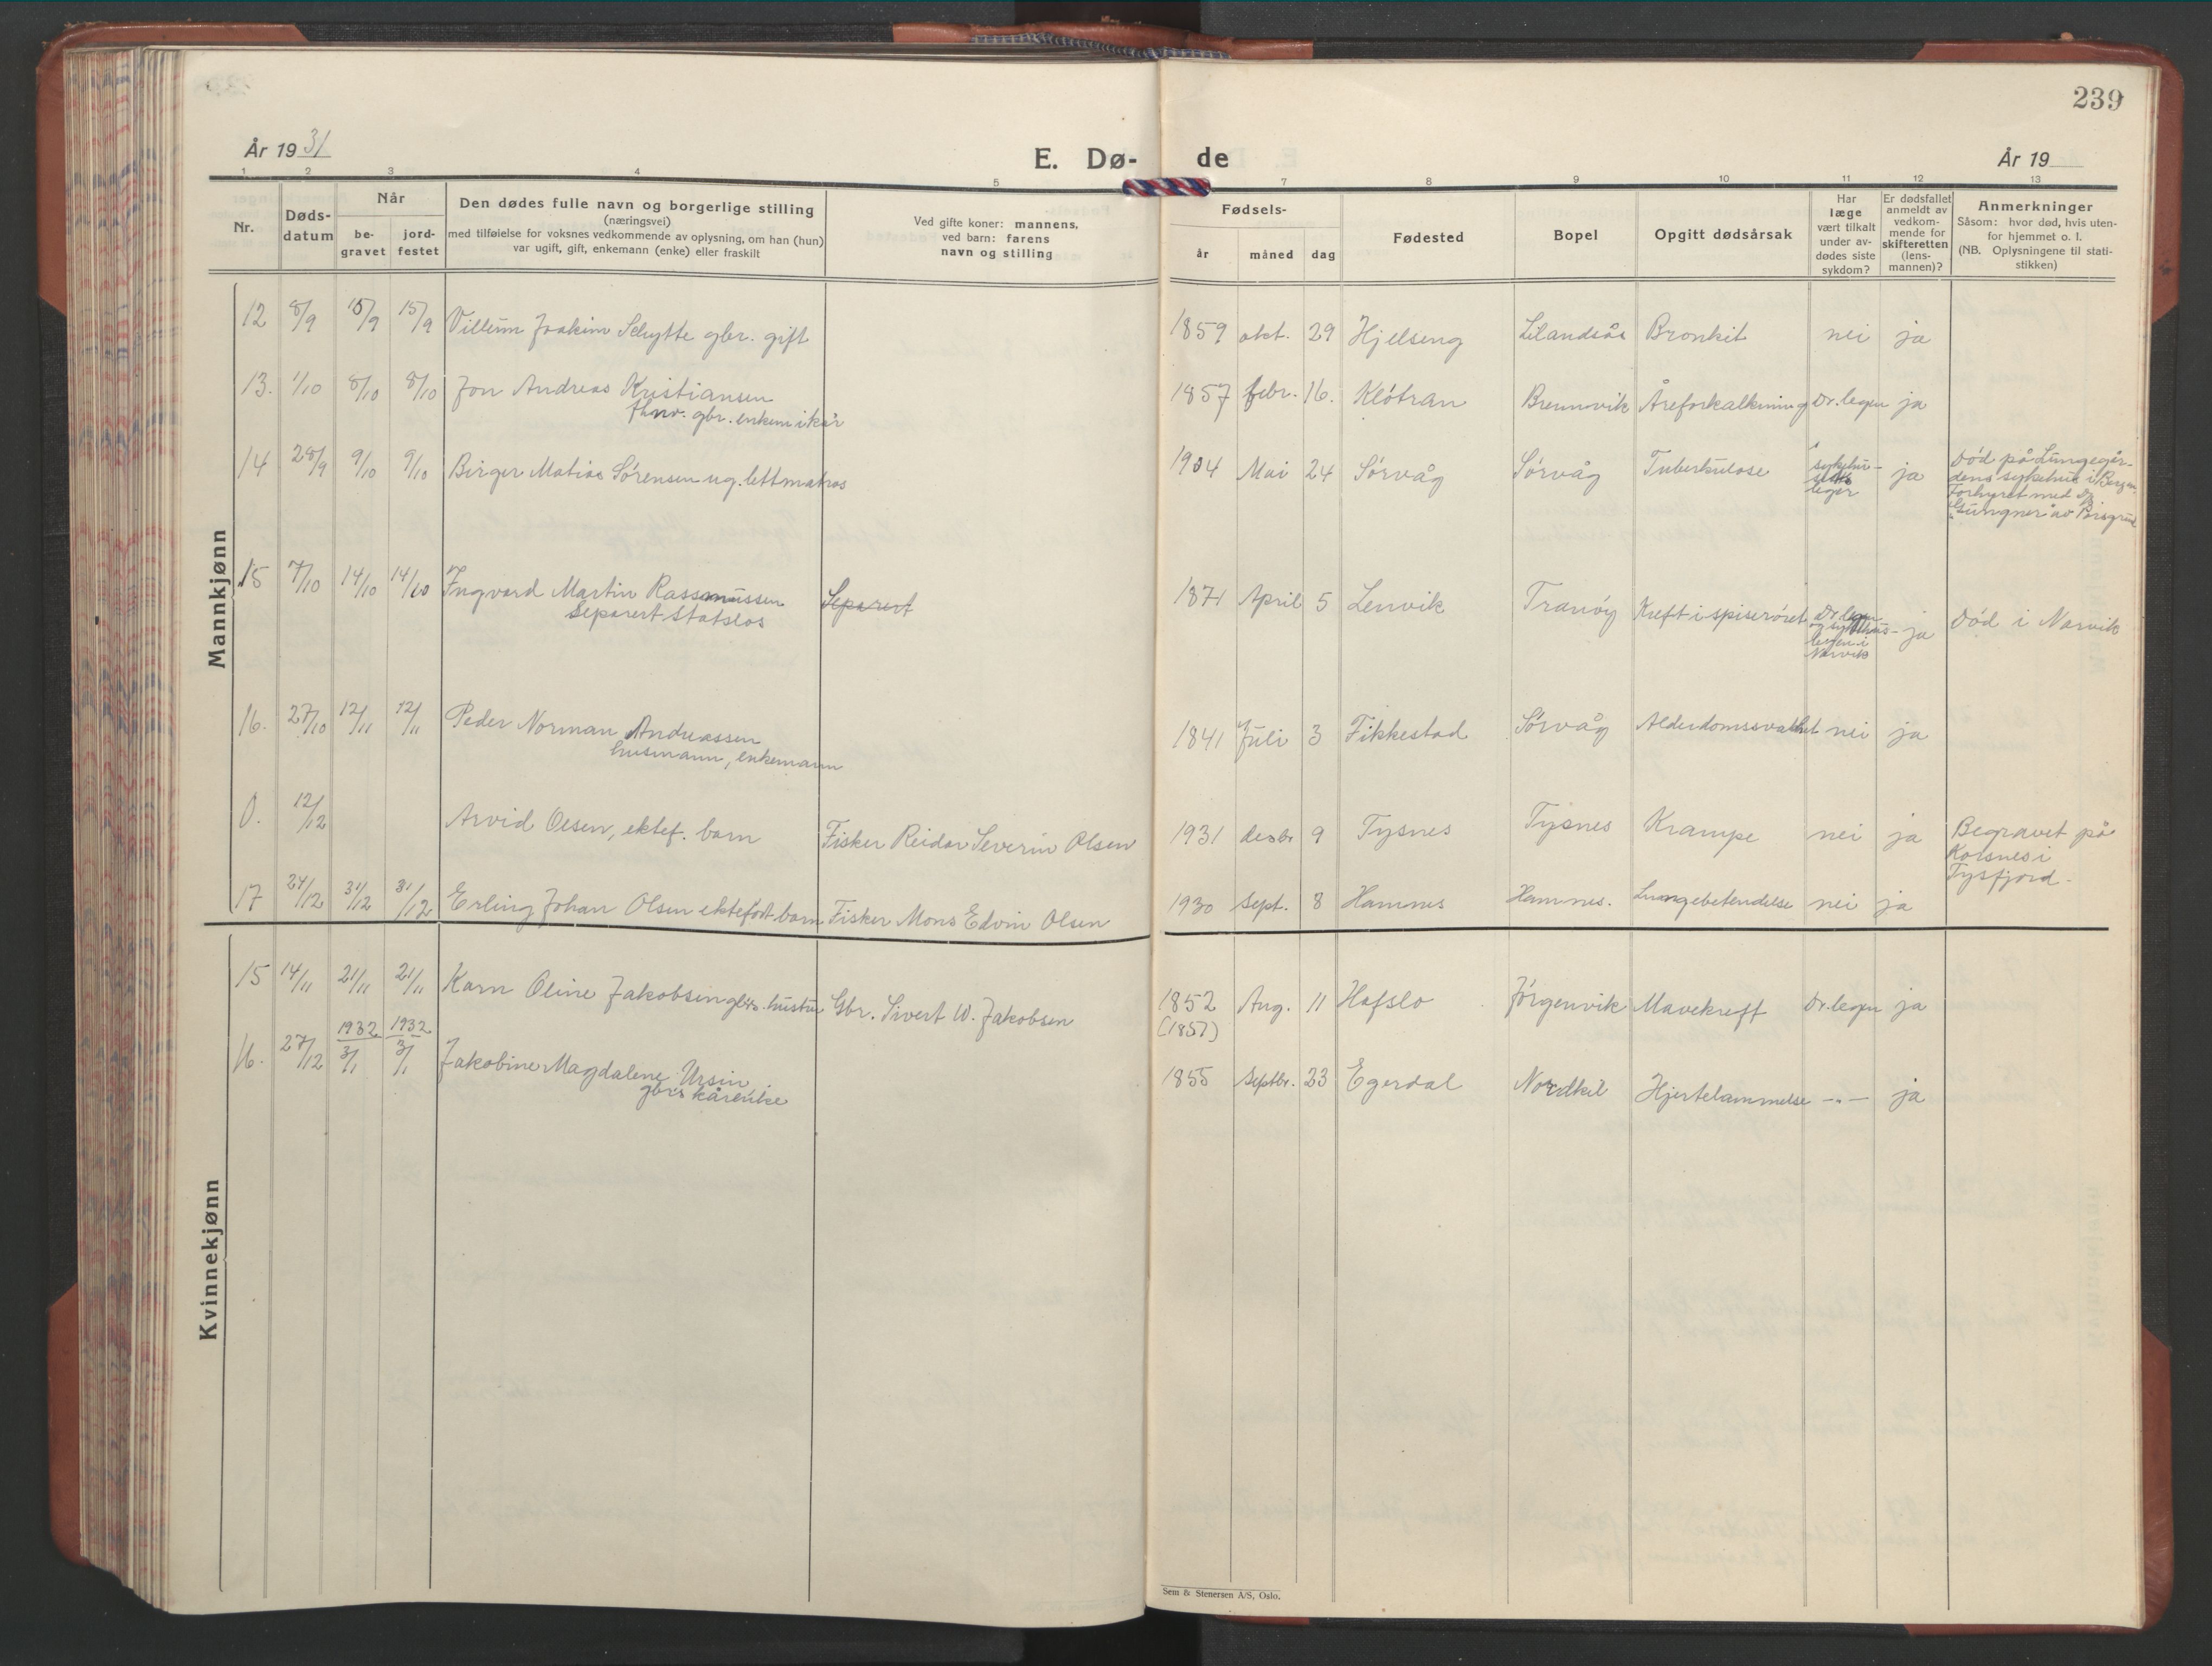 239
År 1931
E. Dø- de
År 19
1 2 3 4 5 7 8 9 10 11 12 13
Nr.
Døds-
datum
Når
be-
gravet
jord-
festet
Den dødes fulle navn og borgerlige stilling
(næringsvei)
med tilføielse for voksnes vedkommende av oplysning, om han (hun)
var ugift, gift, enkemann (enke) eller fraskilt
Ved gifte koner: mannens,
ved barn: farens
navn og stilling
Fødsels-
år måned dag
Fødested
Bopel
Opgitt dødsårsak
Har
læge
vært tilkalt
under av-
dødes siste
sykdom?
Er dødsfallet
anmeldt av
vedkom-
mende for
skifteretten
(lens-
mannen)?
Anmerkninger
Såsom: hvor død, hvis uten-
for hjemmet o. l.
(NB. Oplysningene til stati-
stikken)
Mannkjønn
12 8/9 15/9 15/9 Villum Joakim Schytte gbr. gift 1859 okt. 29 Hjelseng Lilandsås Bronkit nei ja
13. 1/10 8/10 8/10 Jon Andreas Kristiansen 1857 febr. 16. Klótran Brennvik Åreforkalkning Dr. legen ja
fhnv. gbr. enkem i kår
14 28/9 9/10 9/10 Birger Matias Sórensen ug. lettmatros 1904 Mai 24 Sórvåg Sórvåg Tuberkulose sykehus- leger ja
Død på Lungegår-
dens sykehus i Bergen.
Forhyret med D/S
"Gungner" av Porsgrund
15 7/10 14/10 14/10 Ingvard Martin Rassmussen Separert 1871 April 5 Lenvik Tranóy Kreft i spiserøret
Separert Statslos
Dr. legen
og sykehus-
legen i
Narvik
ja Død i Narvik
16. 27/10 12/11 12/11 Peder Norman Andreassen 1841 Juli 3 Fikkestad Sórvåg Alderdomssvakhet nei ja
husmann, enkemann
0. 12/12 Arvid Olsen, ektef. barn Fisker Reidar Severin Olsen 1931 desbr 9 Tysnes Tysnes Krampe nei ja Begravet på
Korsnes i
Tysfjord.
17 24/12 31/12 31/12 Erling Johan Olsen ektefødt barn Fisker Mons Edvin Olsen 1930 Sept. 8 Hamnes Hamnes. Lungebetendelse nei ja
Kvinnekjønn
15 14/11 21/11 21/11 Karn Oline Jakobsen gbrs. hustru Gbr. Sivert W. Jakobsen 1852 Aug. 11 Hafslo Jørgenvik Mavekreft Dr. legen ja
(1857)
1932 1932
16. 27/12 3/1 3/1 Jakobine Magdalene Ursin 1855 Septbr. 23 Egerdal Nordkil Hjertelammelse -"- ja
gbr's kårenke
Sem & Stenersen A/S, Oslo.